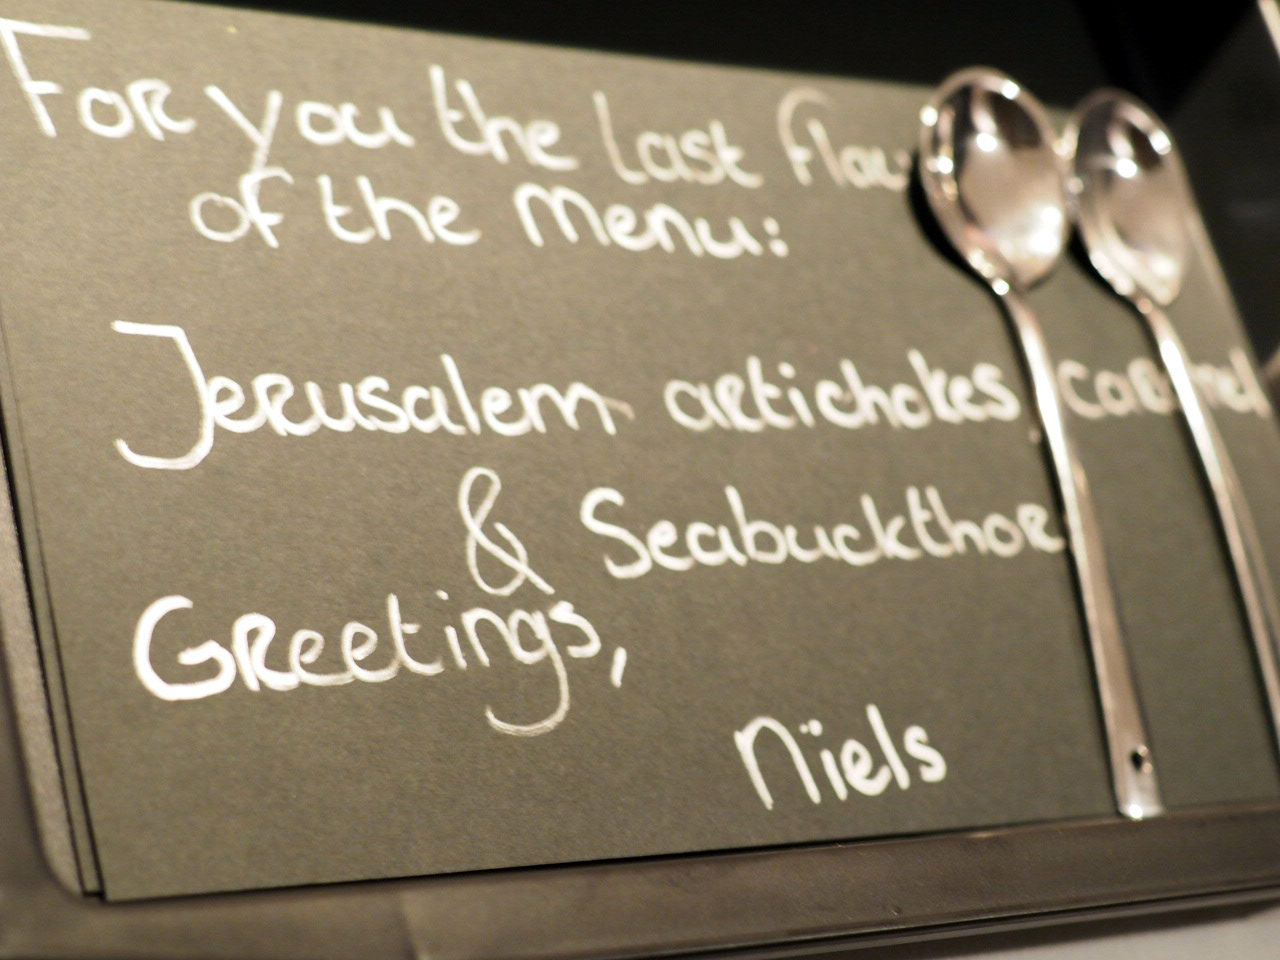 For you the last
of the menu:
Jerusalem artichokes,
& Seabuckthor
Greetings,
Nïels